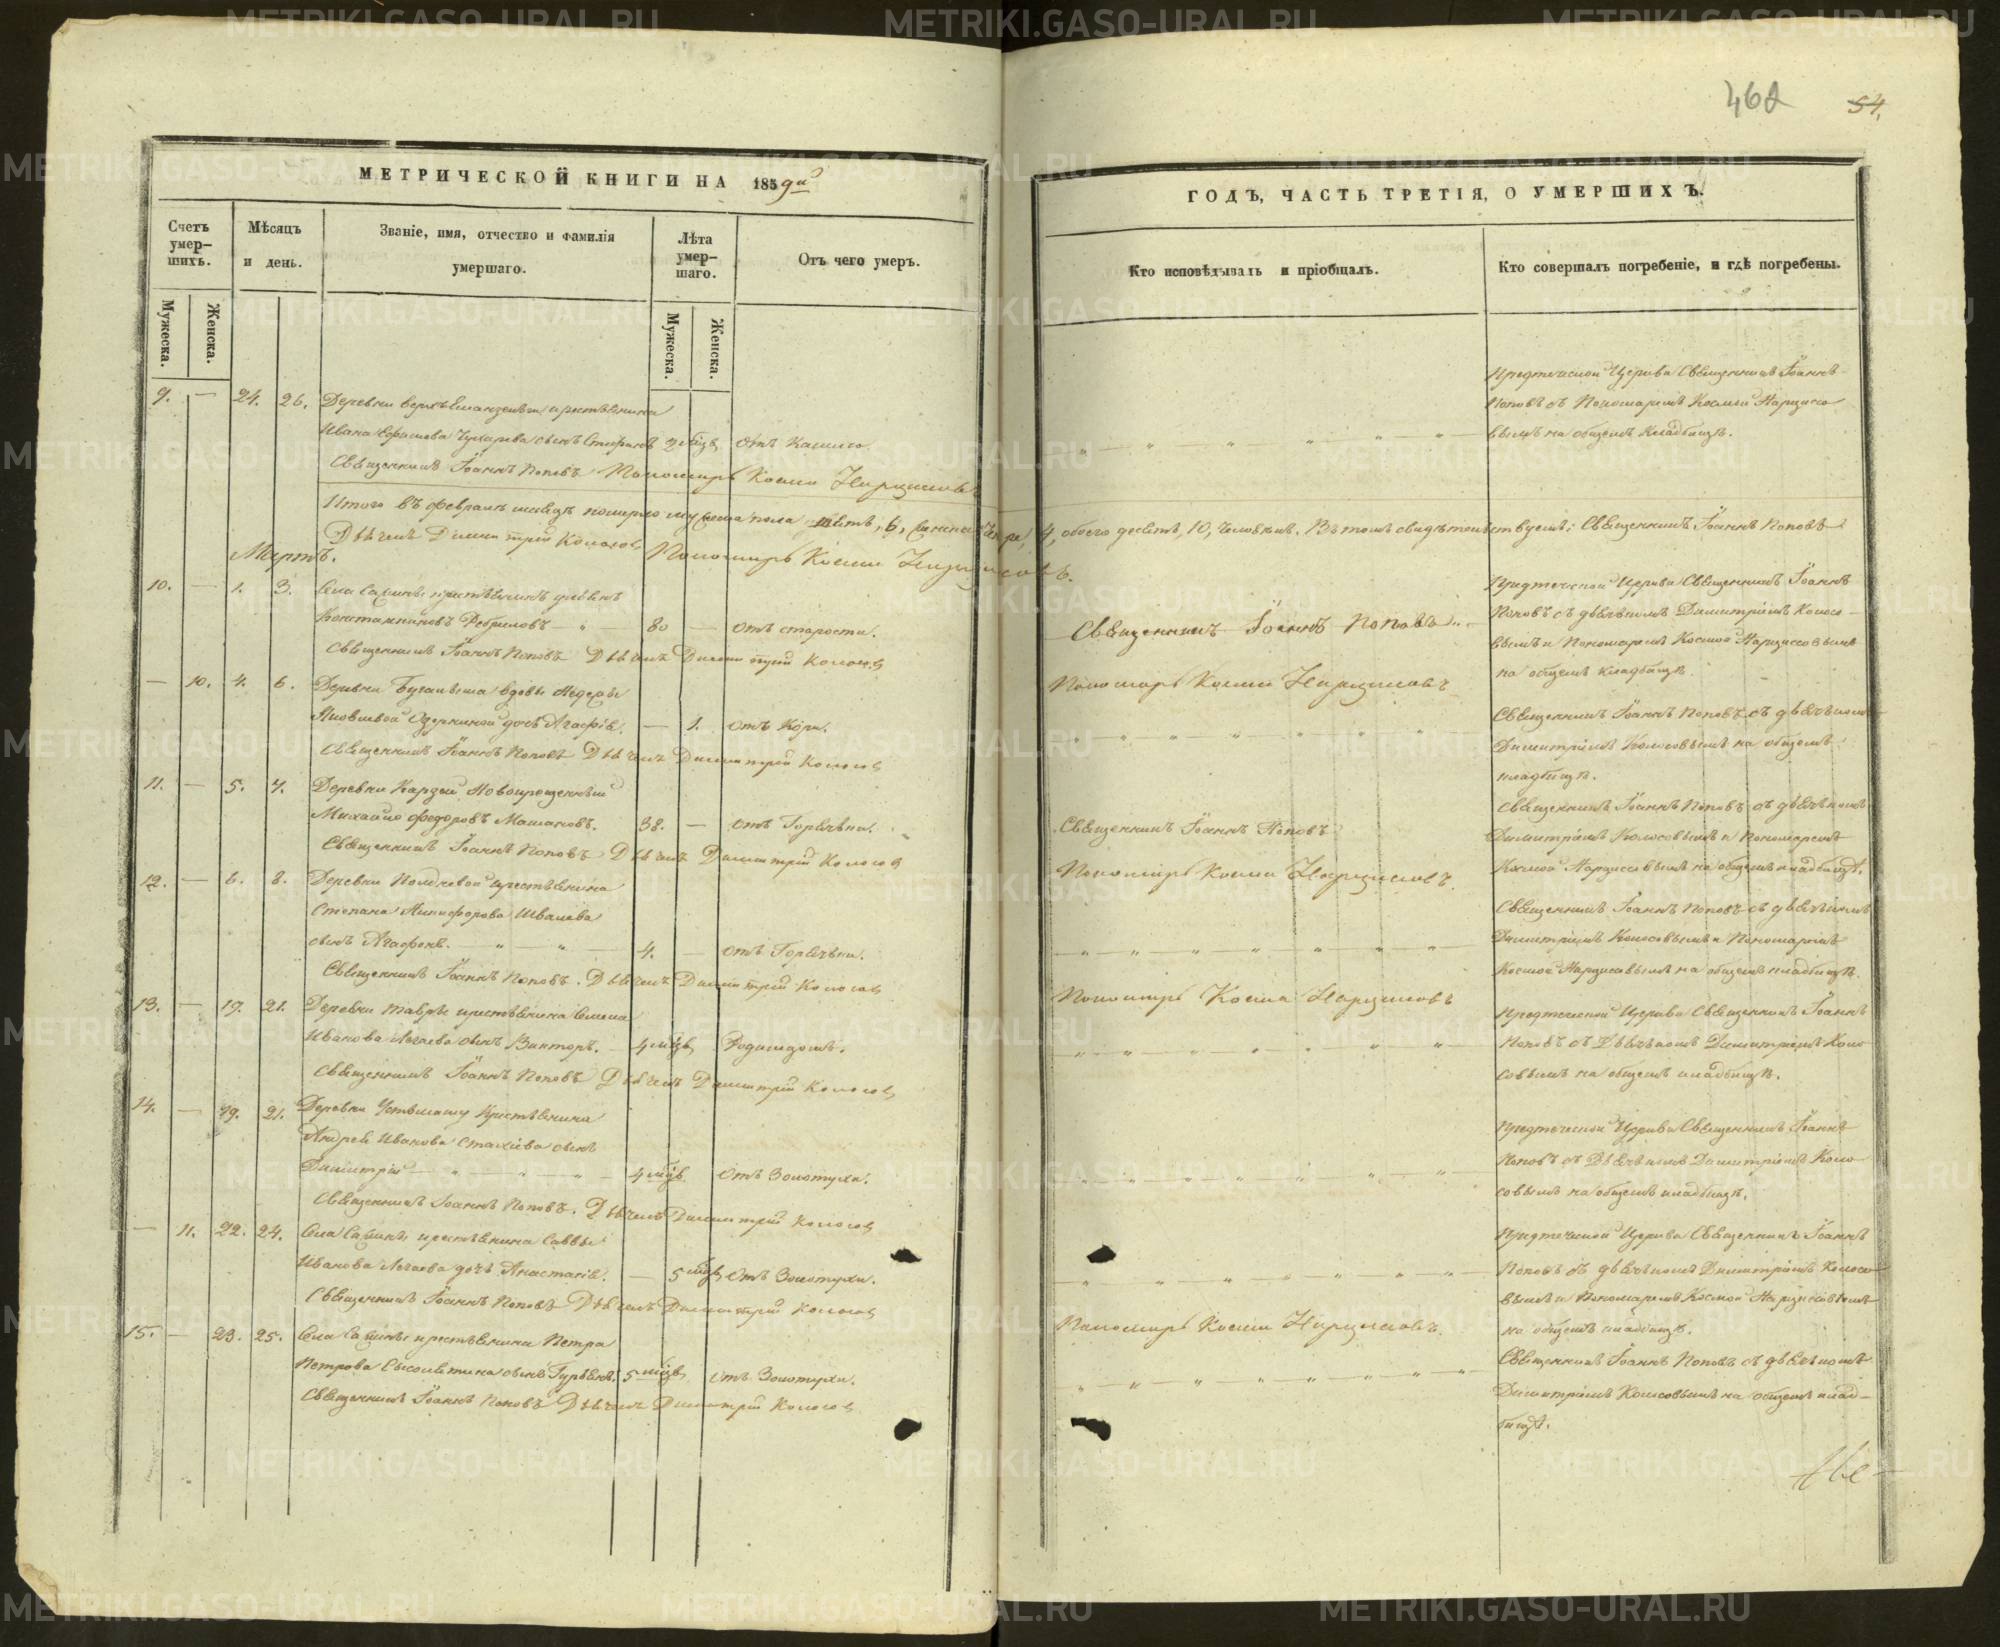 462
54.
МЕТРИЧЕСКОЙ КНИГИ НА 1859й
ГОДЪ, ЧАСТЬ ТРЕТІЯ, О УМЕРШИХЪ.
Счетъ умер-шихъ.
Мѣсяцъ и день.
Званіе, имя, отчество и фамилія умершаго.
Лѣта умер-шаго.
Отъ чего умеръ.
Кто исповѣдывалъ и пріобщалъ.
Кто совершалъ погребеніе, и гдѣ погребены.
Мужеска.
Женска.
Мужеска.
Женска.
9. — 24. 26. Деревни крестьянина
Ивана сынъ Стефанъ 2 мѣс. Отъ кашлю
Священникъ Іоаннъ Поповъ Пономарь Косма Нарциссовъ
Предтечской Церкви Священникъ Іоаннъ
Поповъ съ Пономаремъ Космою Нарциссо
вымъ на общемъ кладбищѣ.
Итого въ февралѣ мѣсяцѣ померло мужеска пола 6, женска 4, обоего десять, 10, человѣкъ. Въ томъ свидѣтельствуемъ: Священникъ Іоаннъ Поповъ
Діячекъ Димитрій Колосовъ Пономарь Косма Нарциссовъ.
Мартъ.
10. — 1. 3. Села Сажина крестьянинъ
Константиновъ — " — 80 — Отъ старости.
Священникъ Іоаннъ Поповъ Діячекъ Димитрій Колосовъ
Священникъ Іоаннъ Поповъ
Пономарь Косма Нарциссовъ
Предтечской Церкви Священникъ Іоаннъ
Поповъ съ дьячькомъ Димитріемъ Колосо-
вымъ и Пономаремъ Космою Нарциссовымъ
на общемъ кладбищѣ.
— 10. 4. 6. Деревни вдовы
Яковлевой дочь Агафія. — 1. Отъ Кори.
Священникъ Іоаннъ Поповъ Діячекъ Димитрій Колосовъ
Священникъ Іоаннъ Поповъ съ дьячькомъ
Димитріемъ Колосовымъ на общемъ
кладбищѣ.
11. — 5. 7. Деревни Новокрещенный
Михайло Федоровъ 38. — Отъ Горячьки.
Священникъ Іоаннъ Поповъ Діячекъ Димитрій Колосовъ
Священникъ Іоаннъ Поповъ
Пономарь Косма Нарциссовъ.
Священникъ Іоаннъ Поповъ съ дьячькомъ
Димитріемъ Колосовымъ и Пономаремъ
Космою Нарциссовымъ на общемъ кладбищѣ.
12. — 6. 8. Деревни крестьянина
Степана Никифорова
сынъ Агафонъ. — " — " — 4. — Отъ Горячьки.
Священникъ Іоаннъ Поповъ. Діячекъ Димитрій Колосовъ
Пономарь Косма Нарциссовъ
Священникъ Іоаннъ Поповъ съ дьячькомъ
Димитріемъ Колосовымъ и Пономаремъ
Космою Нарциссовымъ на общемъ кладбищѣ.
13. — 19. 21. Деревни Тавры крестьянина Семена
Иванова сынъ Викторъ. — 4 мѣс. Родимцомъ.
Священникъ Іоаннъ Поповъ Діячекъ Димитрій Колосовъ
Предтеческой Церкви Священникъ Іоаннъ
Поповъ съ Дьячькомъ Димитріемъ Коло
совымъ на общемъ кладбищѣ.
14. — 19. 21. Деревни крестьянина
Андрея Иванова сынъ
Димитрій — " — " — " — 4 мѣс. Отъ Золотухи.
Священникъ Іоаннъ Поповъ. Діячекъ Димитрій Колосовъ
Предтеческой Церкви Священникъ Іоаннъ
Поповъ съ Дьячькомъ Димитріемъ Коло-
совымъ на общемъ кладбищѣ.
— 11. 22. 24. Села Сажина крестьянина Саввы
Иванова дочь Анастасія. — 5 мѣс. Отъ Золотухи.
Священникъ Іоаннъ Поповъ Діячекъ Димитрій Колосовъ
Пономарь Косма Нарциссовъ.
Предтеческой Церкви Священникъ Іоаннъ
Поповъ съ дьячькомъ Димитріемъ Колосо
вымъ и Пономаремъ Космою Нарциссовымъ
на общемъ кладбищѣ.
15. — 23. 25. Села Сажина крестьянина Петра
Петрова сынъ 5 мѣс. Отъ Золотухи.
Священникъ Іоаннъ Поповъ Діячекъ Димитрій Колосовъ
Священникъ Іоаннъ Поповъ съ дьячькомъ
Димитріемъ Колосовымъ на общемъ клад-
бищѣ.
METRIKI.GASO-URAL.RU